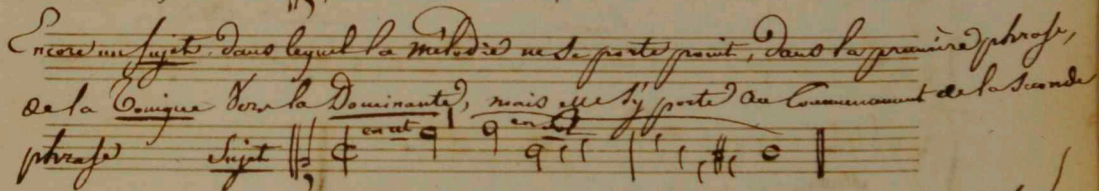 Encore un Sujet, dans lequel la mélodie ne se porte point, dans la première phrase,
de la Tonique Vers la Dominante, mais elle s'y porte au Commencement de la Seconde
phrase Sujet en ut en